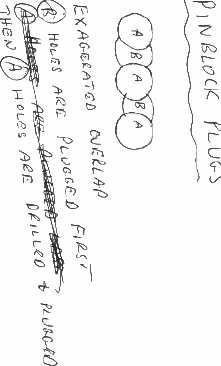 PINBLOCK PLUGS
A B A B A
EXAGERATED OVERLAP
B HOLES ARE PLUGGED FIRST
THEN A HOLES ARE DRILLED & PLUGGED